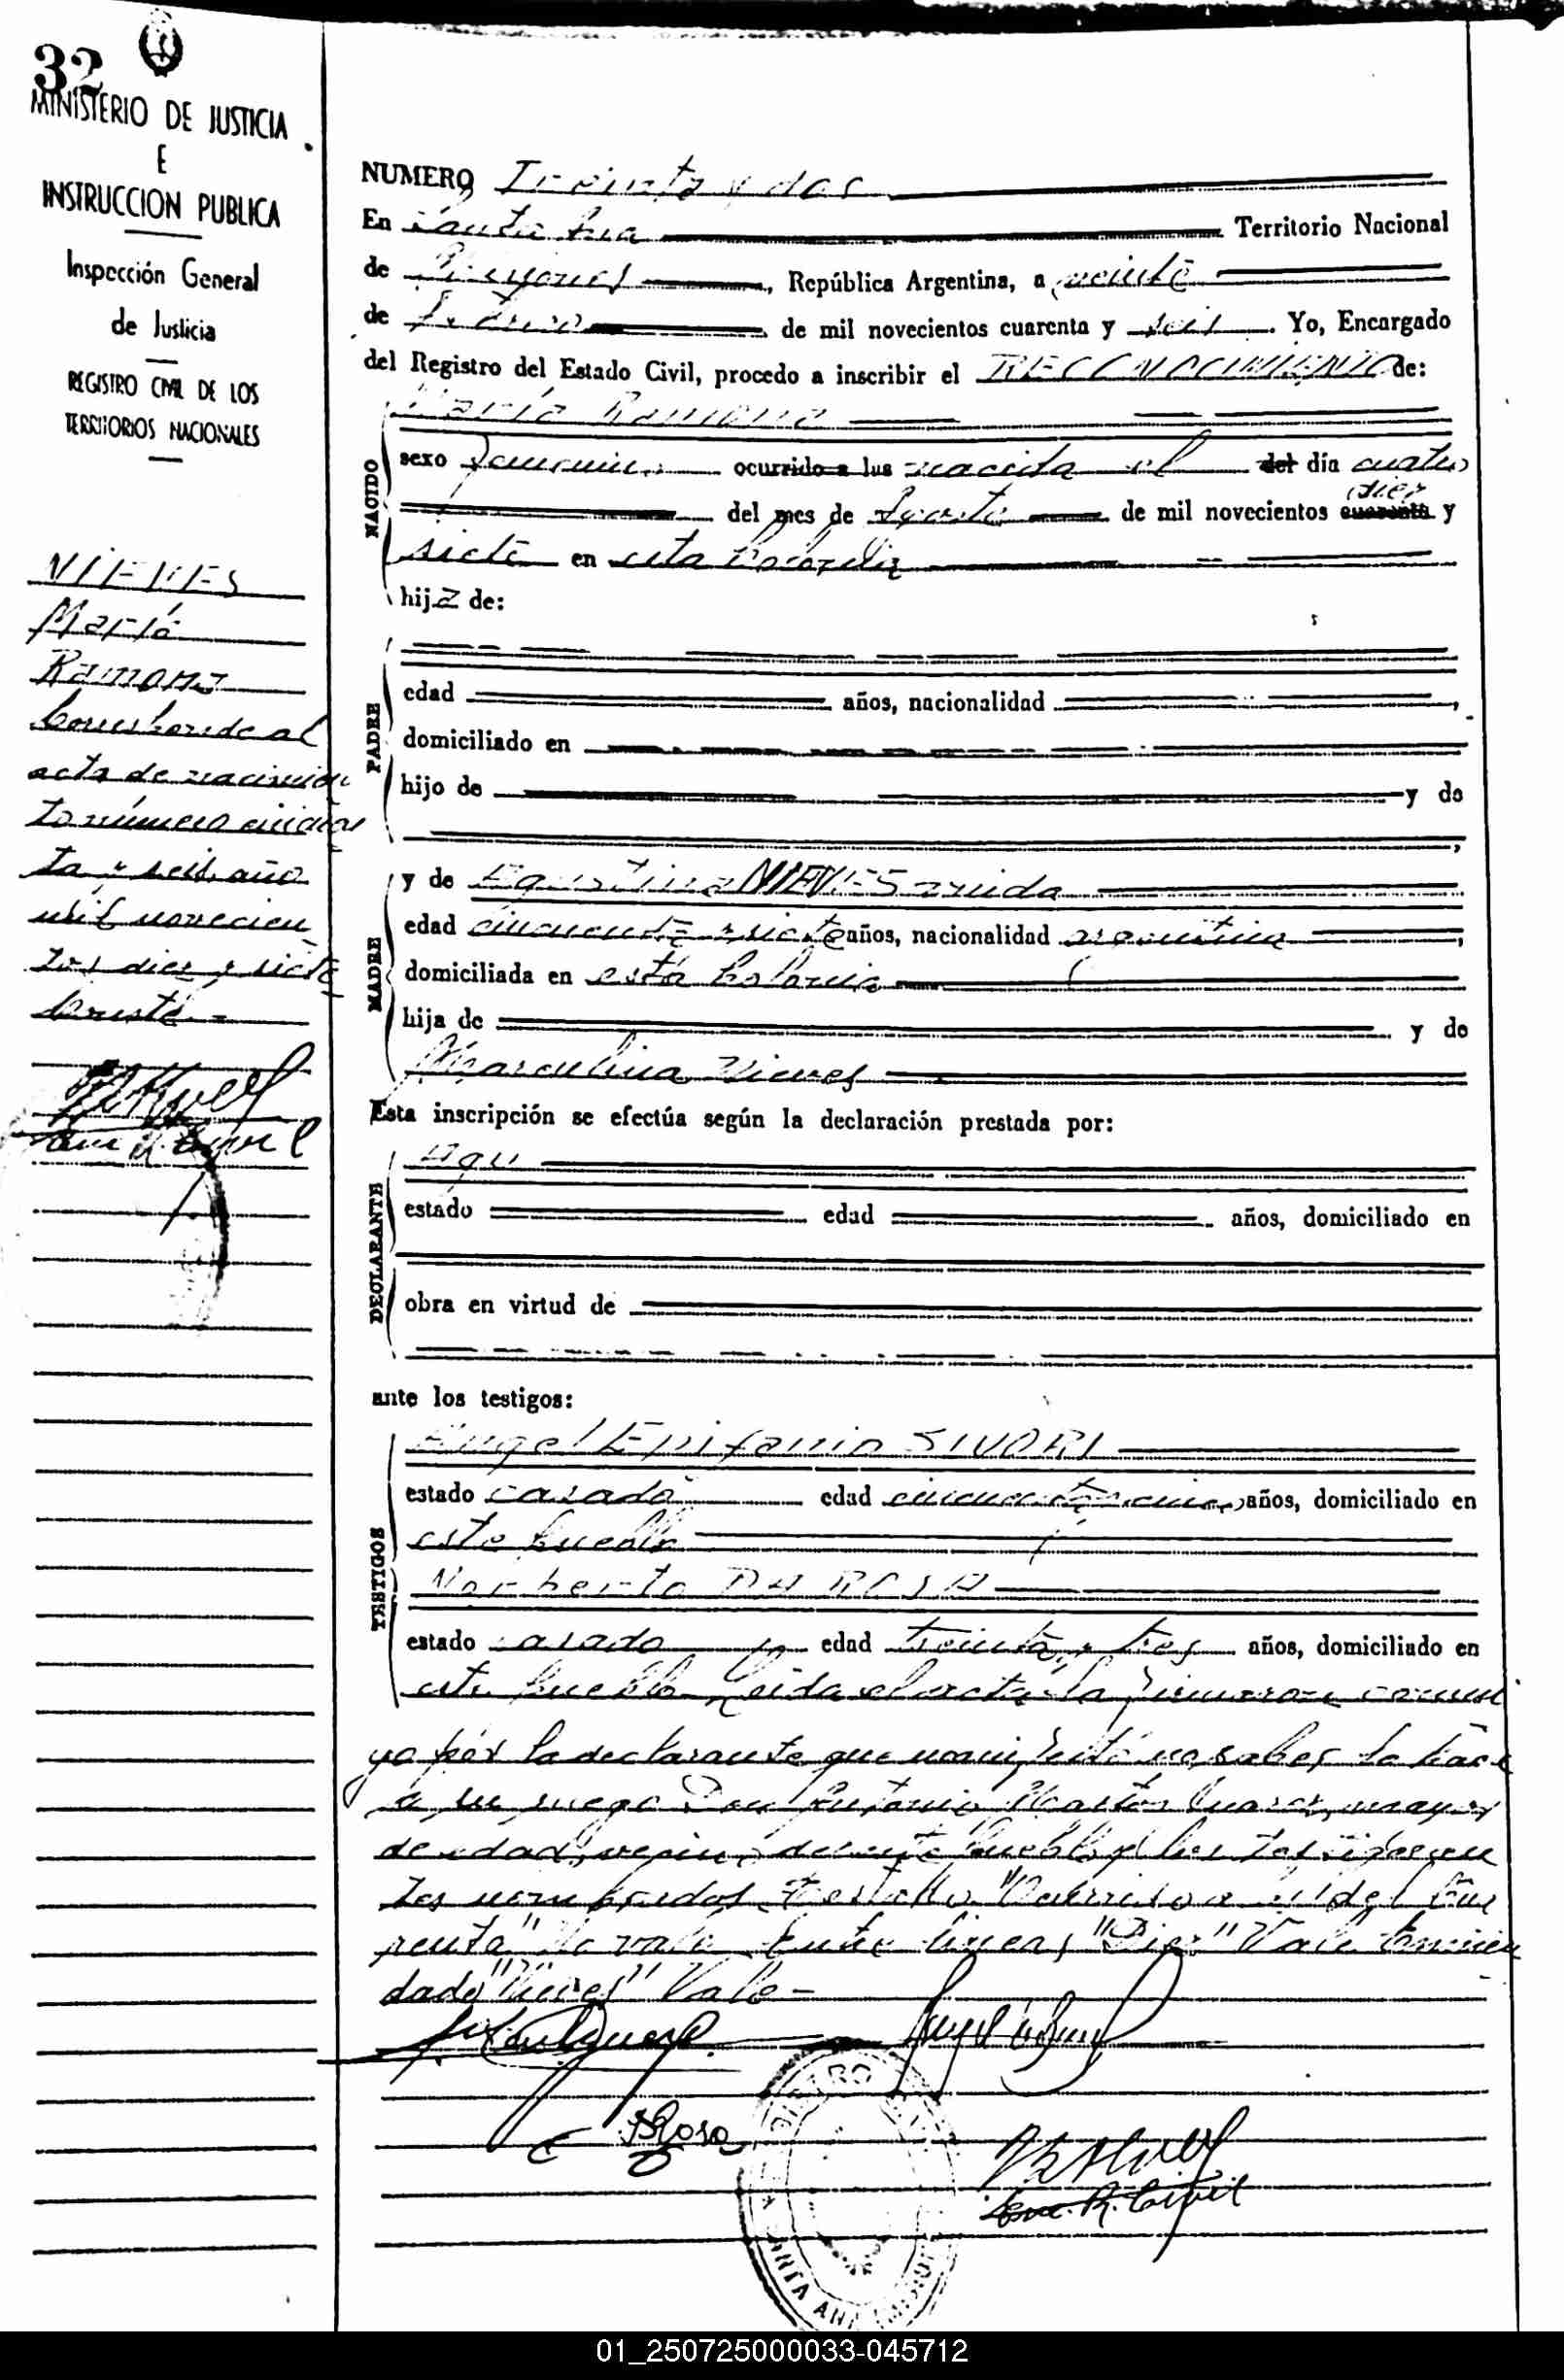 32
MINISTERIO DE JUSTICIA
E
INSTRUCCION PUBLICA
Inspección General
de Justicia
REGISTRO CIVIL DE LOS
TERRITORIOS NACIONALES
NIEVES
María
Ramona
Corresponde al
acta de nacimien
to número cincuen
ta y seis año
mil novecien
tos diez y siete
Conste.-
NUMERO Treinta y dos
En Santa Ana Territorio Nacional
de Misiones, República Argentina, a veinte
de de mil novecientos cuarenta y seis. Yo, Encargado
del Registro del Estado Civil, procedo a inscribir el RECONOCIMIENTO de:
María Ramona
NACIDO
sexo femenino ocurrido a las nacida el del día cuatro
diez
del mes de Agosto de mil novecientos cuarenta y
siete en esta Colonia
hija de:
PADRE
edad años, nacionalidad
domiciliado en
hijo de y de
MADRE
y de Agustina NIEVES viuda
edad cincuenta y siete años, nacionalidad argentina
domiciliada en esta Colonia
hija de y de
Marculina Nieves
Esta inscripción se efectúa según la declaración prestada por:
DECLARANTE
estado edad años, domiciliado en
obra en virtud de
ante los testigos:
TESTIGOS
Angel Epifanio SIVORI
estado casado edad cincuenta y cinco años, domiciliado en
este pueblo
Norberto DA ROSA
estado casado edad treinta y tres años, domiciliado en
este pueblo Leida el acta la firmaron conmi
go por la declarante que manifestó no saber lo hace
a su ruego Don Antonio mayor
de edad, vecino de este pueblo y los testigos
nombrados Testado "ocurrido a las" "del" "cua
renta" No vale Entre lineas "Diez" Vale Enmien
dado "Nieves" Vale-
Rosa
Enc. R. Civil
SANTA ANA
01_250725000033-045712